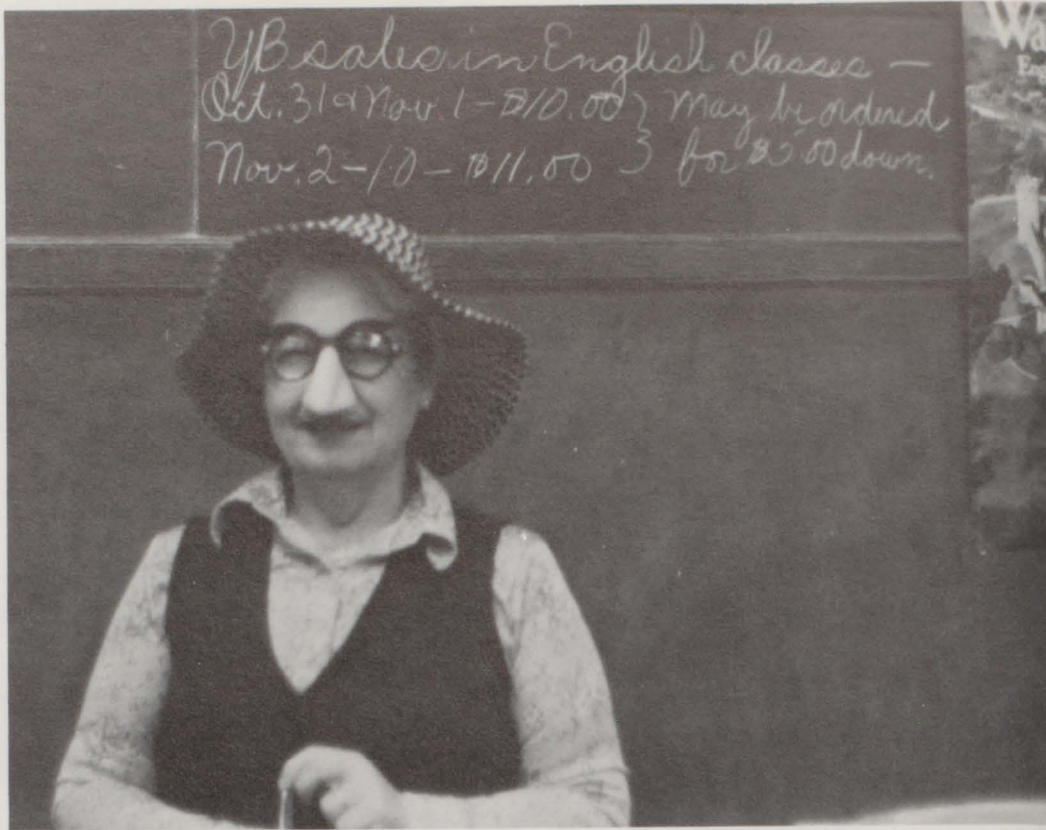 YB sales in English classes —
Oct. 31 & Nov. 1 - $10.00 } May be ordered
Nov. 2-10 - $11.00 } for $5.00 down.
Wa
Eng